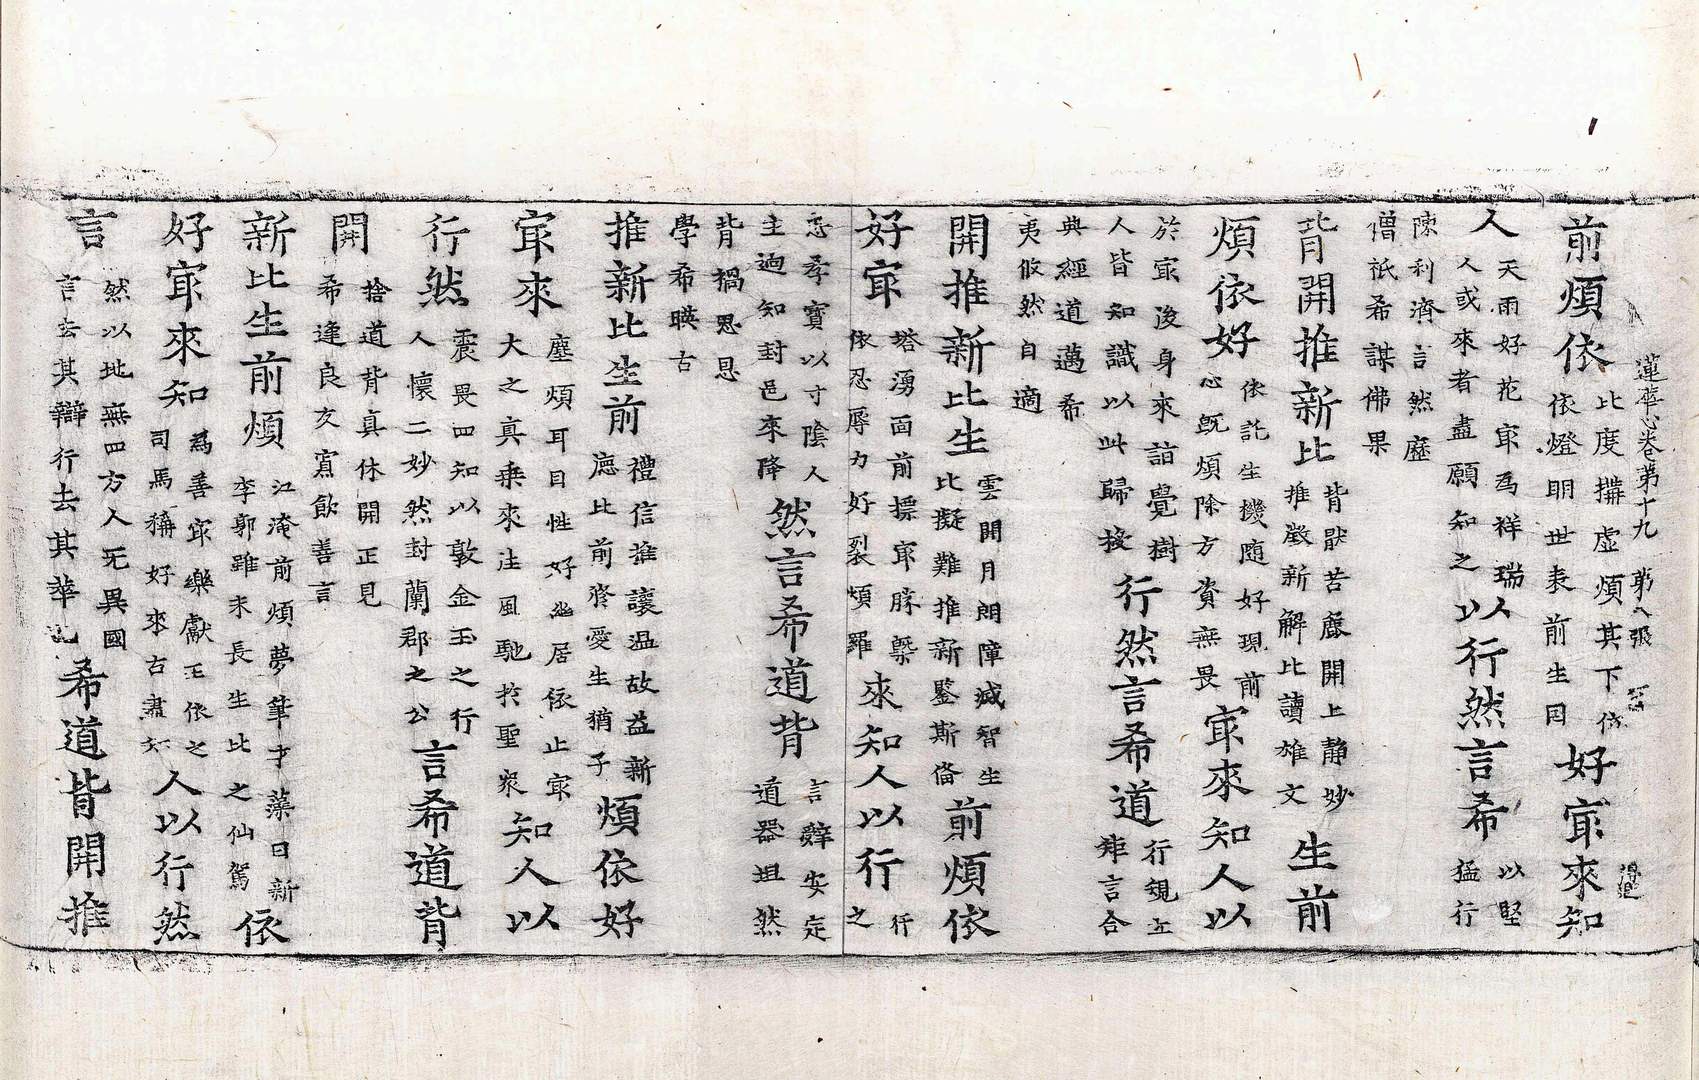 蓮華心卷第十九 第八張
前煩依 比度攡虛煩其下依 依燈明世表前生因 好㝡來知
人 天雨好花㝡爲祥瑞 人或來者盡願知之 以行然言希 以堅 猛行
陳利濟言然歷
僧祇希謀佛果
背開推新比 背厭苦麁開上静妙 推徵新解比讀雄文 生前
煩依好 依託生機随好現前 心旣煩除方資無畏 㝡來知人以
於㝡後身來詣覺樹 人皆知識以此歸投 行然言希道 行規 矩言合
典經道邁希
夷攸然自適
開推新比生 雲開月朗障滅智生 比擬難推新鑒斯俻 前煩依
好㝡 塔湧面前摽㝡勝槩 依忍辱力好裂煩羅 來知人以行 行 之
忘孝寳以寸陰人 主逈知封邑來降 然言希道背 言辭安定 道器坦然
背禍思恩
學希暎古
推新比生前 禮信推讓温故益新 德比前脩愛生猶子 煩依好
㝡來 塵煩耳目性好幽居依止㝡 大之真乗來注風馳於聖衆 知人以
行然 震畏四知以敦金玉之行 人懷二妙然封蘭郡之公 言希道背
開 捨道背真休開正見 希逢良友寫飲善言
新比生前煩 江淹前煩夢筆才藻日新 李郭雖未長生比之仙駕 依
好㝡來知 爲善㝡樂獻王依之 司馬稱好來古肅如 人以行然
言 然以地無四方人无異國 言去其辯行去其華 希道背開推